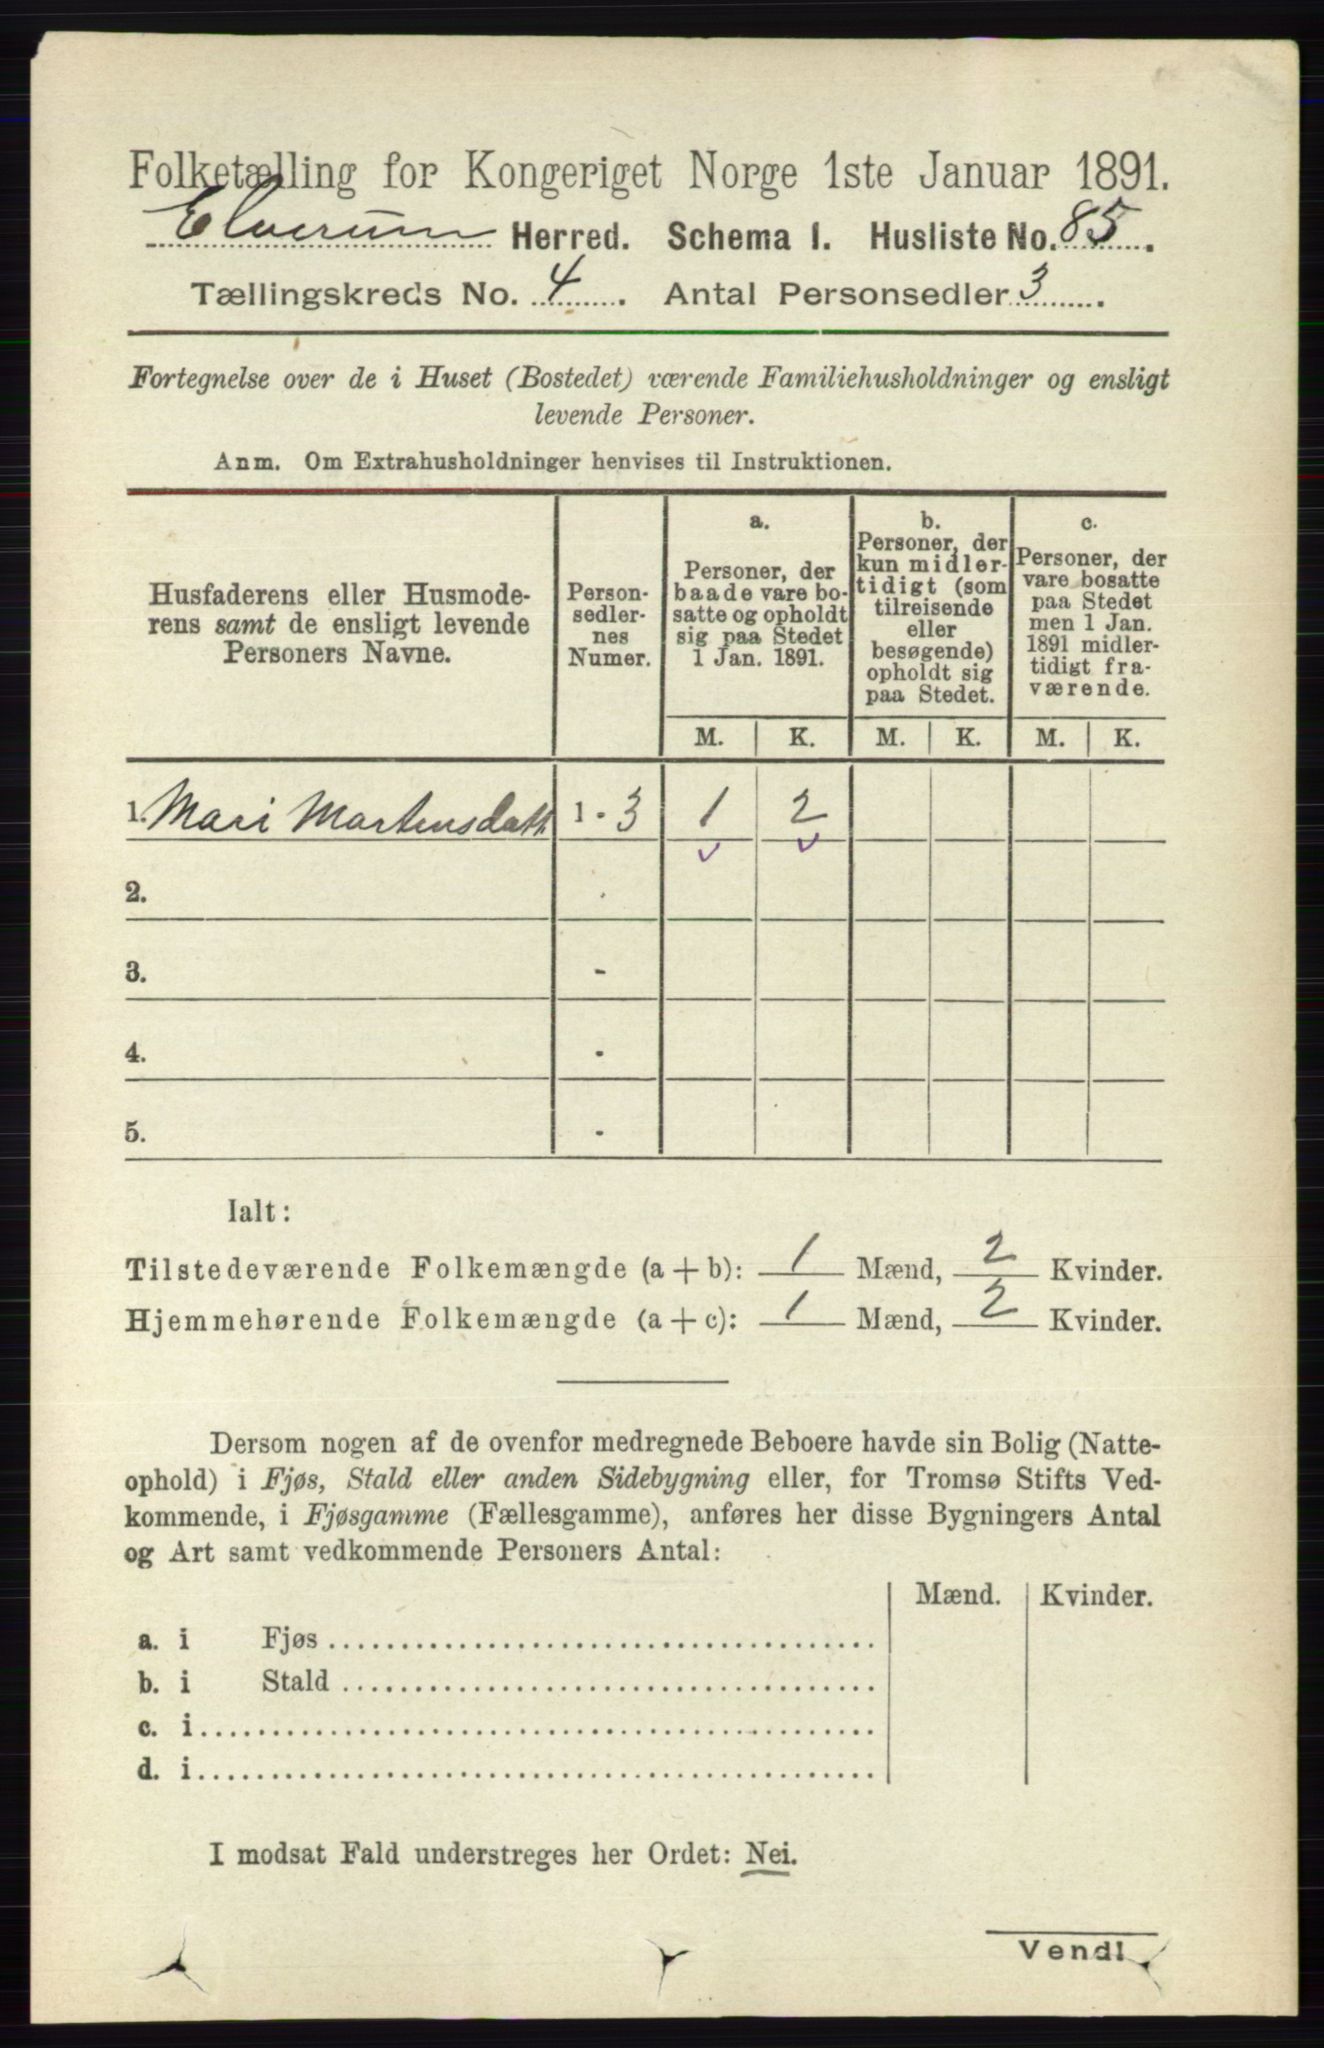 Folketælling for Kongeriget Norge 1ste Januar 1891.
Elverum Herred. Schema I. Husliste No. 85.
Tællingskreds No. 4. Antal Personsedler 3.
Fortegnelse over de i Huset (Bostedet) værende Familiehusholdninger og ensligt
levende Personer.
Anm. Om Extrahusholdninger henvises til Instruktionen.
Husfaderens eller Husmode-
rens samt de ensligt levende
Personers Navne.
Person-
sedler-
nes
Numer.
a.
Personer, der
baade vare bo-
satte og opholdt
sig paa Stedet
1 Jan. 1891.
b.
Personer, der
kun midler-
tidigt (som
tilreisende
eller
besøgende)
opholdt sig
paa Stedet.
c.
Personer, der
vare bosatte
paa Stedet
men 1 Jan.
1891 midler-
tidigt fra-
værende.
M. K. M. K. M. K.
1. Mari Martensdatt 1 - 3 1 2
2.
3. -
4. -
5. -
Ialt:
Tilstedeværende Folkemængde (a + b): 1 Mænd, 2 Kvinder.
Hjemmehørende Folkemængde (a + c): 1 Mænd, 2 Kvinder.
Dersom nogen af de ovenfor medregnede Beboere havde sin Bolig (Natte-
ophold) i Fjøs, Stald eller anden Sidebygning eller, for Tromsø Stifts Ved-
kommende, i Fjøsgamme (Fællesgamme), anføres her disse Bygningers Antal
og Art samt vedkommende Personers Antal:
Mænd. Kvinder.
a. i Fjøs
b. i Stald
c. i
d. i
I modsat Fald understreges her Ordet: Nei.
Vend!